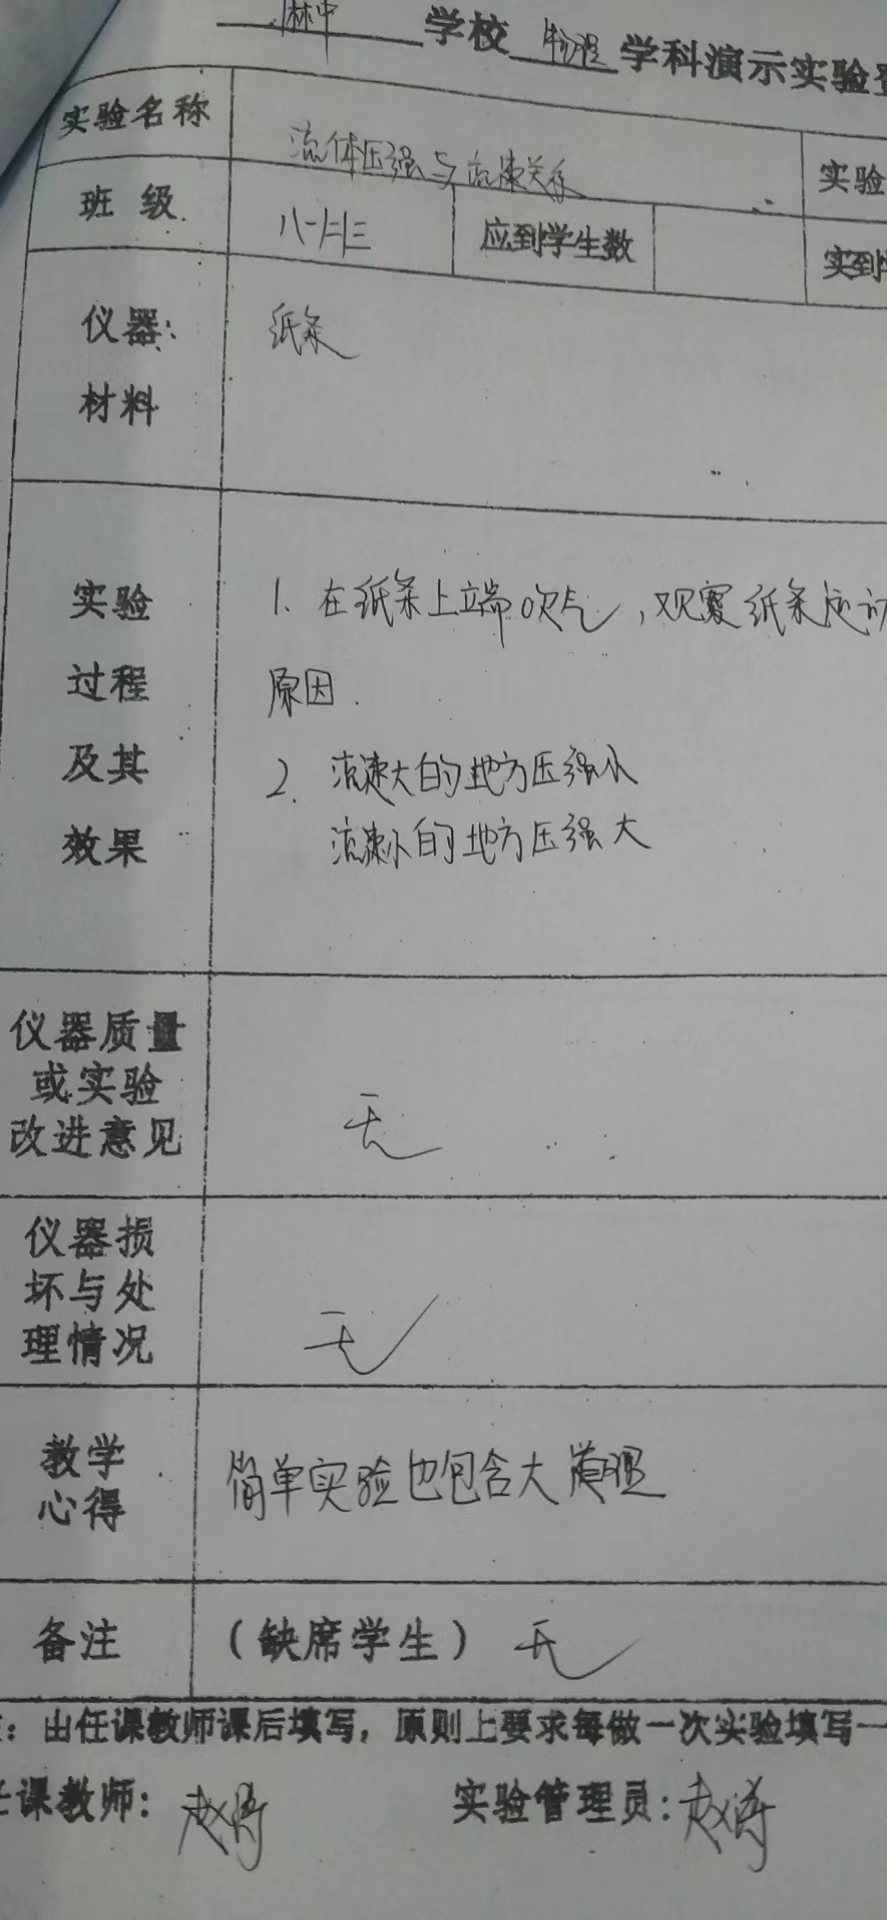 林中 学校 物理 学科演示实验
实验名称 流体压强与流速关系 实验
班级 八一 八二 八三 应到学生数 实到
仪器: 纸条
材料
实验 1. 在纸条上端吹气,观察纸条
过程 原因.
及其 2. 流速大的地方压强小
效果 流速小的地方压强大
仪器质量
或实验
改进意见 无
仪器损
坏与处
理情况 无
教学 简单实验也包含大道理
心得
备注 (缺席学生) 无
: 由任课教师课后填写, 原则上要求每做一次实验填写一
任课教师: 赵涛 实验管理员: 赵涛